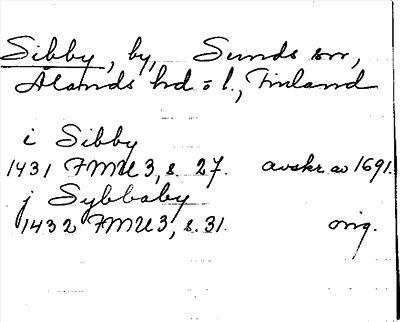 Sibby, by, Sunds sn,
Ålands hd o l., Finland
i Sibby
1431 FMU 3, s. 27. avskr. av 1691.
j Sybbaby
1432 FMU 3, s. 31. orig.